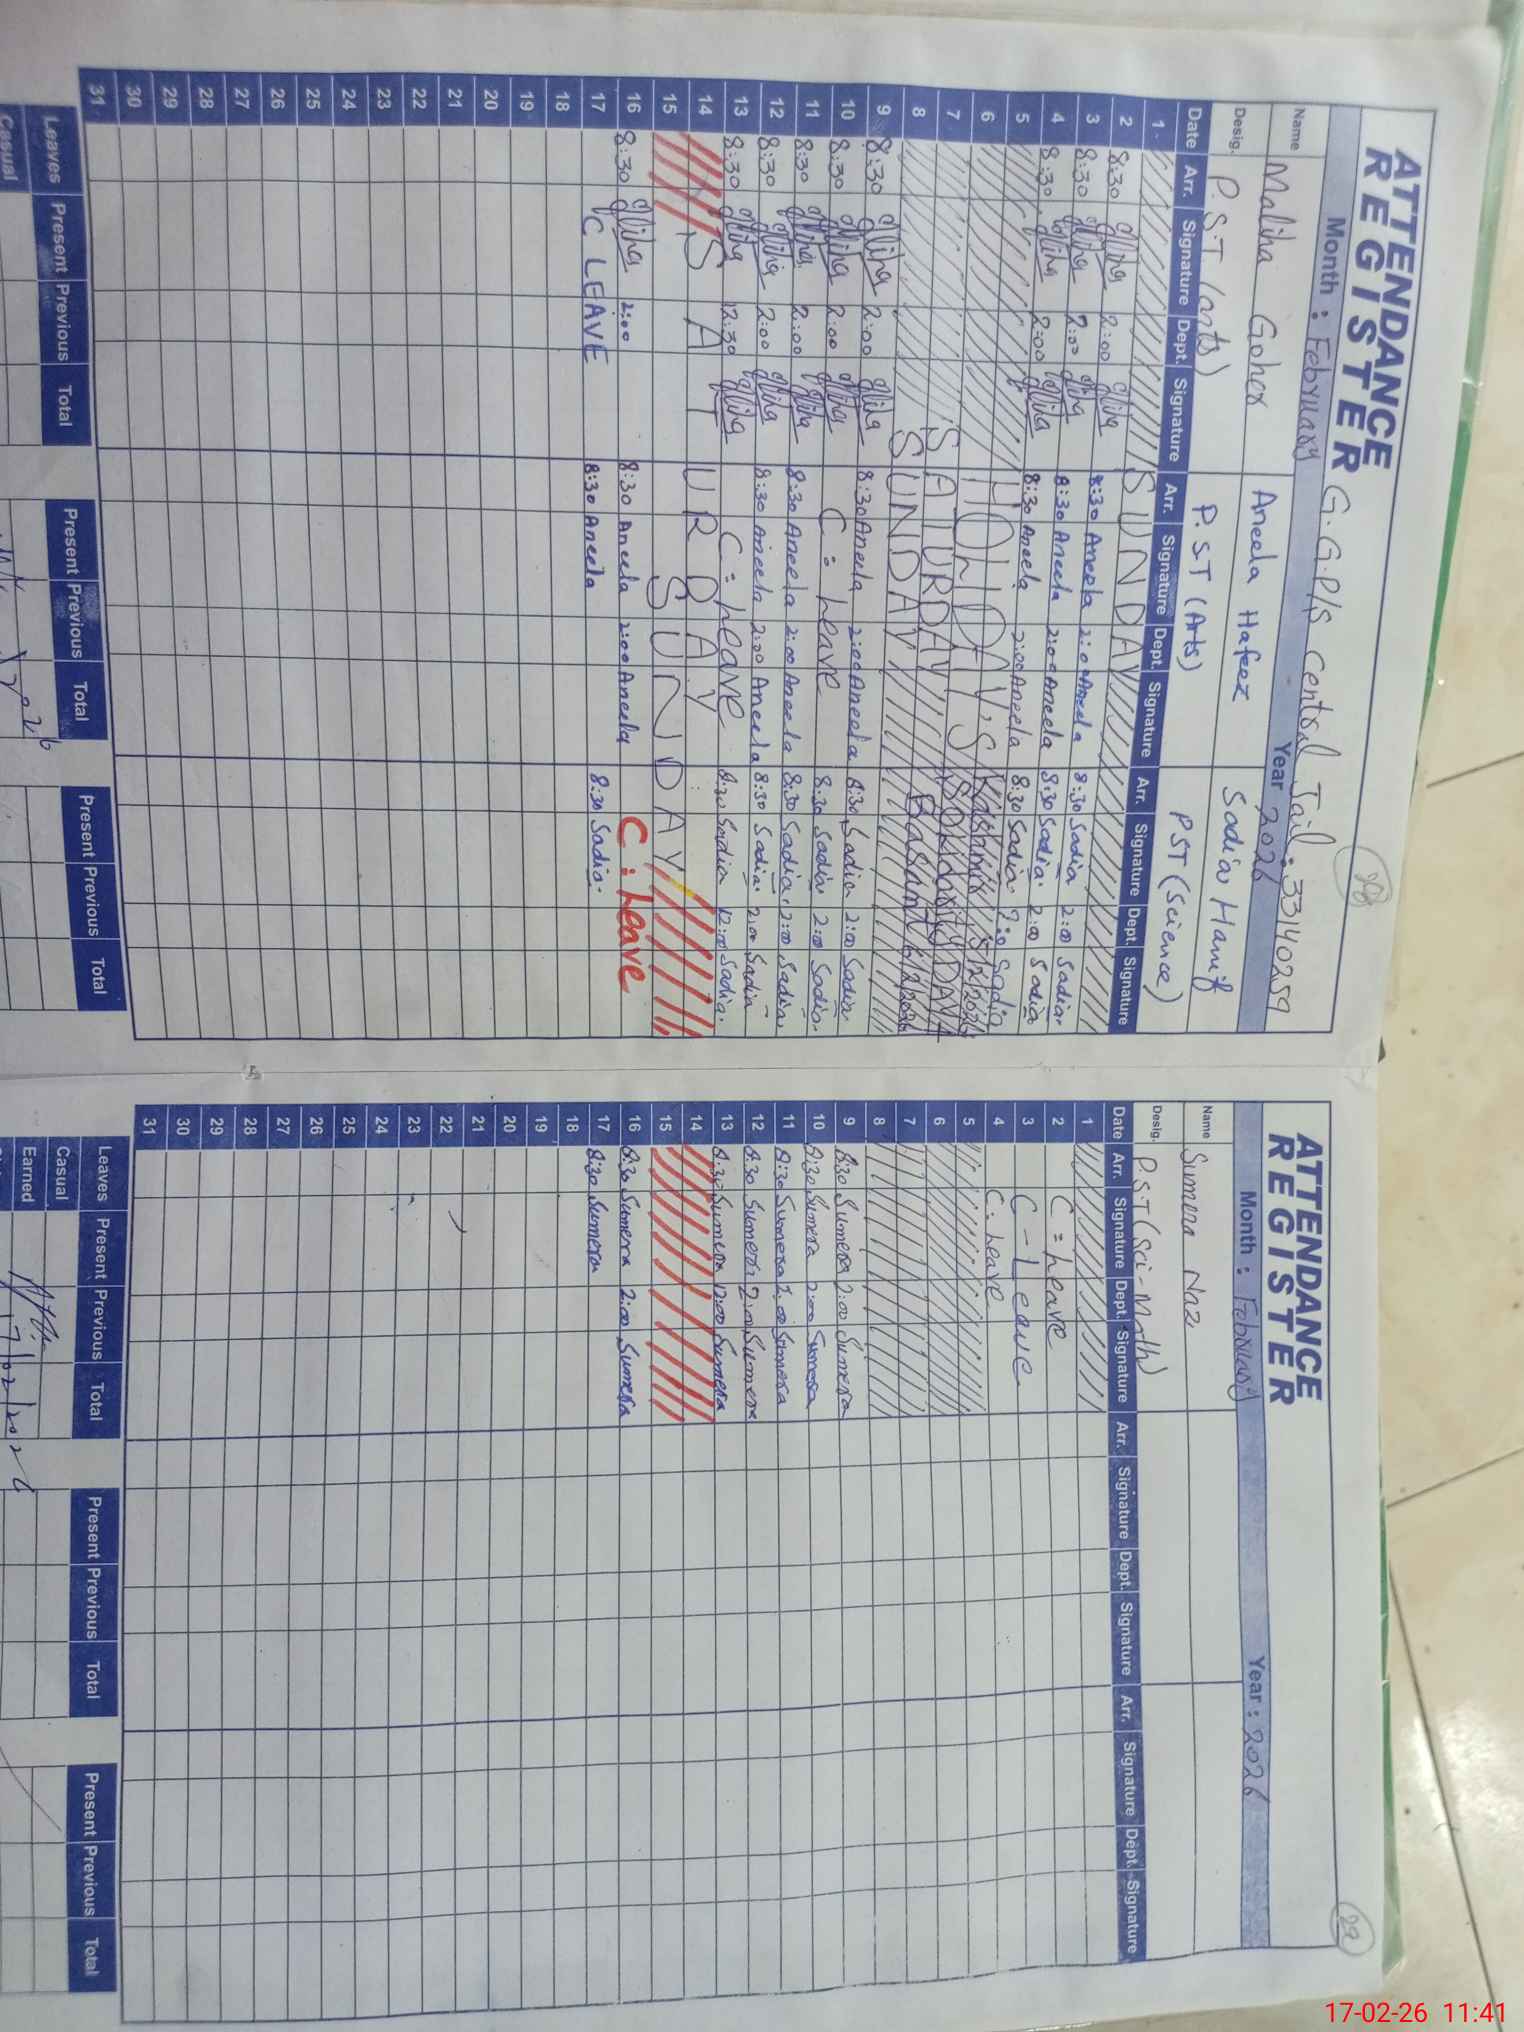 ATTENDANCE
REGISTER
G.G.P/S Central Jail. 33140259
Month : February Year 2026
Name Maliha Goher Aneela Hafeez Sadia Hanif
Desig. P.S.T (arts) P.S.T (Arts) PST (Science)
Date Arr. Signature Dept. Signature Arr. Signature Dept. Signature Arr. Signature Dept. Signature
1 SUNDAY
2 8:30 2:00 8:30 Aneela 2:00 Aneela 8:30 Sadia 2:00 Sadia
3 8:30 2:00 8:30 Aneela 2:00 Aneela 8:30 Sadia 2:00 Sadia
4 8:30 2:00 8:30 Aneela 2:00 Aneela 8:30 Sadia 2:00 Sadia
5 HOLIDAY'S Kashmir 5/2/2026
6 SOLIDARITY DAY
7 SATURDAY Basant 6/2/2026
8 SUNDAY
9 8:30 2:00 8:30 Aneela 2:00 Aneela 8:30 Sadia 2:00 Sadia
10 8:30 2:00 C = Leave 8:30 Sadia 2:00 Sadia.
11 8:30 2:00 8:30 Aneela 2:00 Aneela 8:30 Sadia. 2:00 Sadia.
12 8:30 2:00 8:30 Aneela 2:00 Aneela 8:30 Sadia. 2:00 Sadia
13 8:30 12:30 C = Leave 8:30 Sadia 12:00 Sadia.
14 SATURDAY
15 SUNDAY
16 8:30 2:00 8:30 Aneela 2:00 Aneela C: Leave
17 C LEAVE 8:30 Aneela 8:30 Sadia.
18
19
20
21
22
23
24
25
26
27
28
29
30
31
Leaves Present Previous Total Present Previous Total Present Previous Total
Casual
ATTENDANCE
REGISTER
29
Month : February Year : 2026
Name Sumera Naz
Desig. P.S.T (Sci-Math)
Date Arr. Signature Dept. Signature Arr. Signature Dept. Signature Arr. Signature Dept. Signature
1
2 C = Leave
3 C - Leave
4 C. Leave
5
6
7
8
9 8:30 Sumera 2:00 Sumera
10 8:30 Sumera 2:00 Sumera
11 8:30 Sumera 2:00 Sumera
12 8:30 Sumera 2:00 Sumera
13 8:30 Sumera 12:00 Sumera
14
15
16 8:30 Sumera 2:00 Sumera
17 8:30 Sumera
18
19
20
21
22
23
24
25
26
27
28
29
30
31
Leaves Present Previous Total Present Previous Total Present Previous Total
Casual
Earned
17/02/2026
17-02-26 11:41